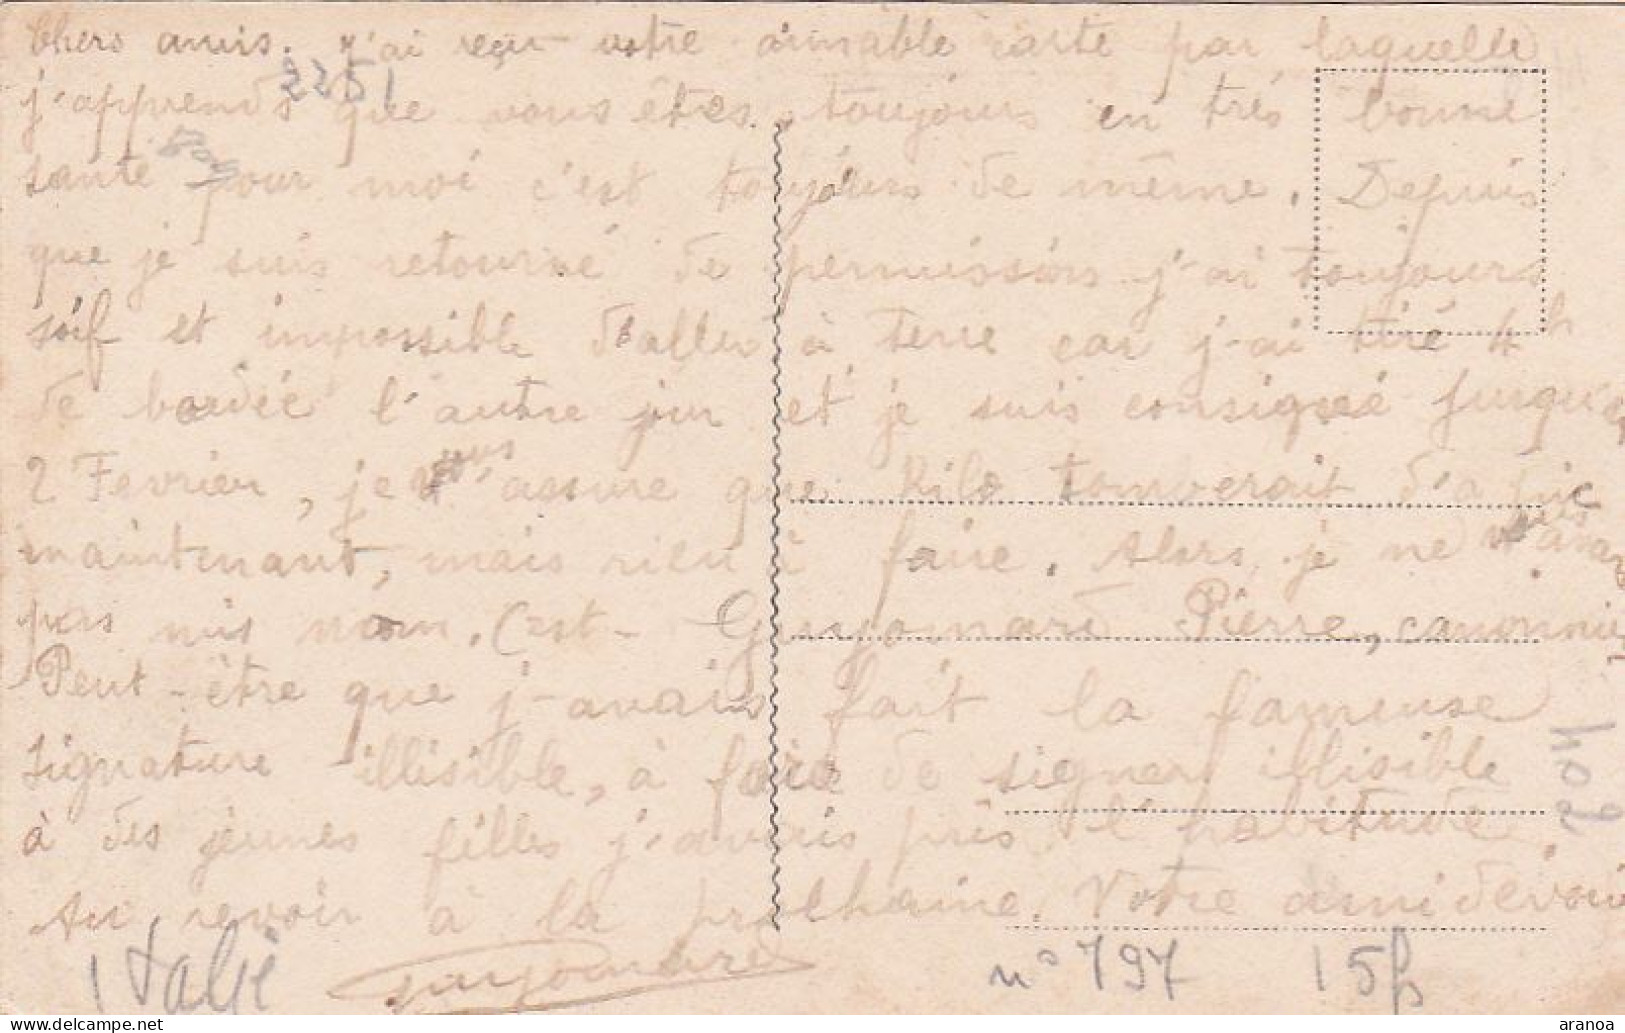 Chers amis. j'ai reçu votre aimable carte par laquelle
2251
j'apprends que vous êtes toujours en très bonne
santé pour moi c'est toujours de même. Depuis
que je suis retourné de permission j'ai toujours
soif et impossible d'aller à terre car j'ai tiré 4h
de bordée l'autre jour et je suis consigné jusqu'au
2 Fevrier, je vous assure que kilo tomberait d'a pic
maintenant, mais rien à faire. Alors je ne vous avais
pas mis nom. C'est Guyomard Pierre, canonnier
Peut-être que j'avais fait la fameuse
signature illisible, à force de signer illisible
à des jeunes filles j'avais pris l'habitude
Au revoir à la prochaine. Votre ami dévoué
Guyomard
Italie
n° 797
15f
204
aranoa